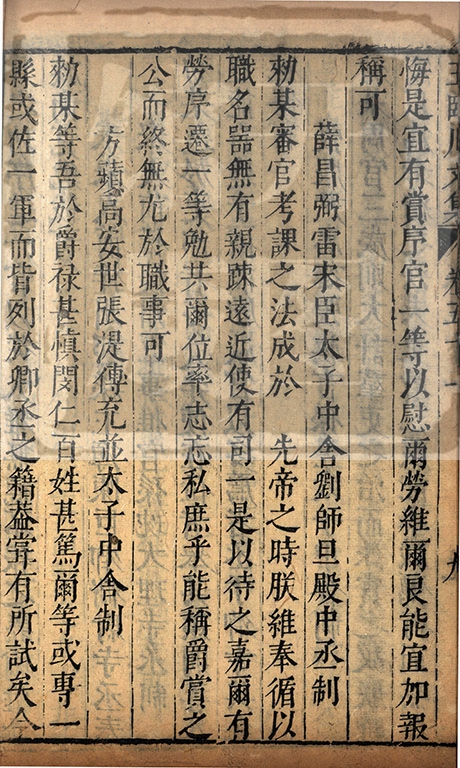 王臨川文集 卷五十一 九
悔是宜有賞序官一等以慰爾勞維爾良能宜加報
稱可
薛昌弼雷宋臣太子中舍劉師旦殿中丞制
勑某審官考課之法成於 先帝之時朕維奉循以
職名器無有親疎遠近使有司一是以待之嘉爾有
勞序遷一等勉共爾位率志忘私庶乎能稱爵賞之
公而終無尤於職事可
方蘋高安世張湜傳充並太子中舍制
勑某等吾於爵禄甚慎閔仁百姓甚篤爾等或專一
縣或佐一軍而皆列於卿丞之籍葢甞有所試矣今